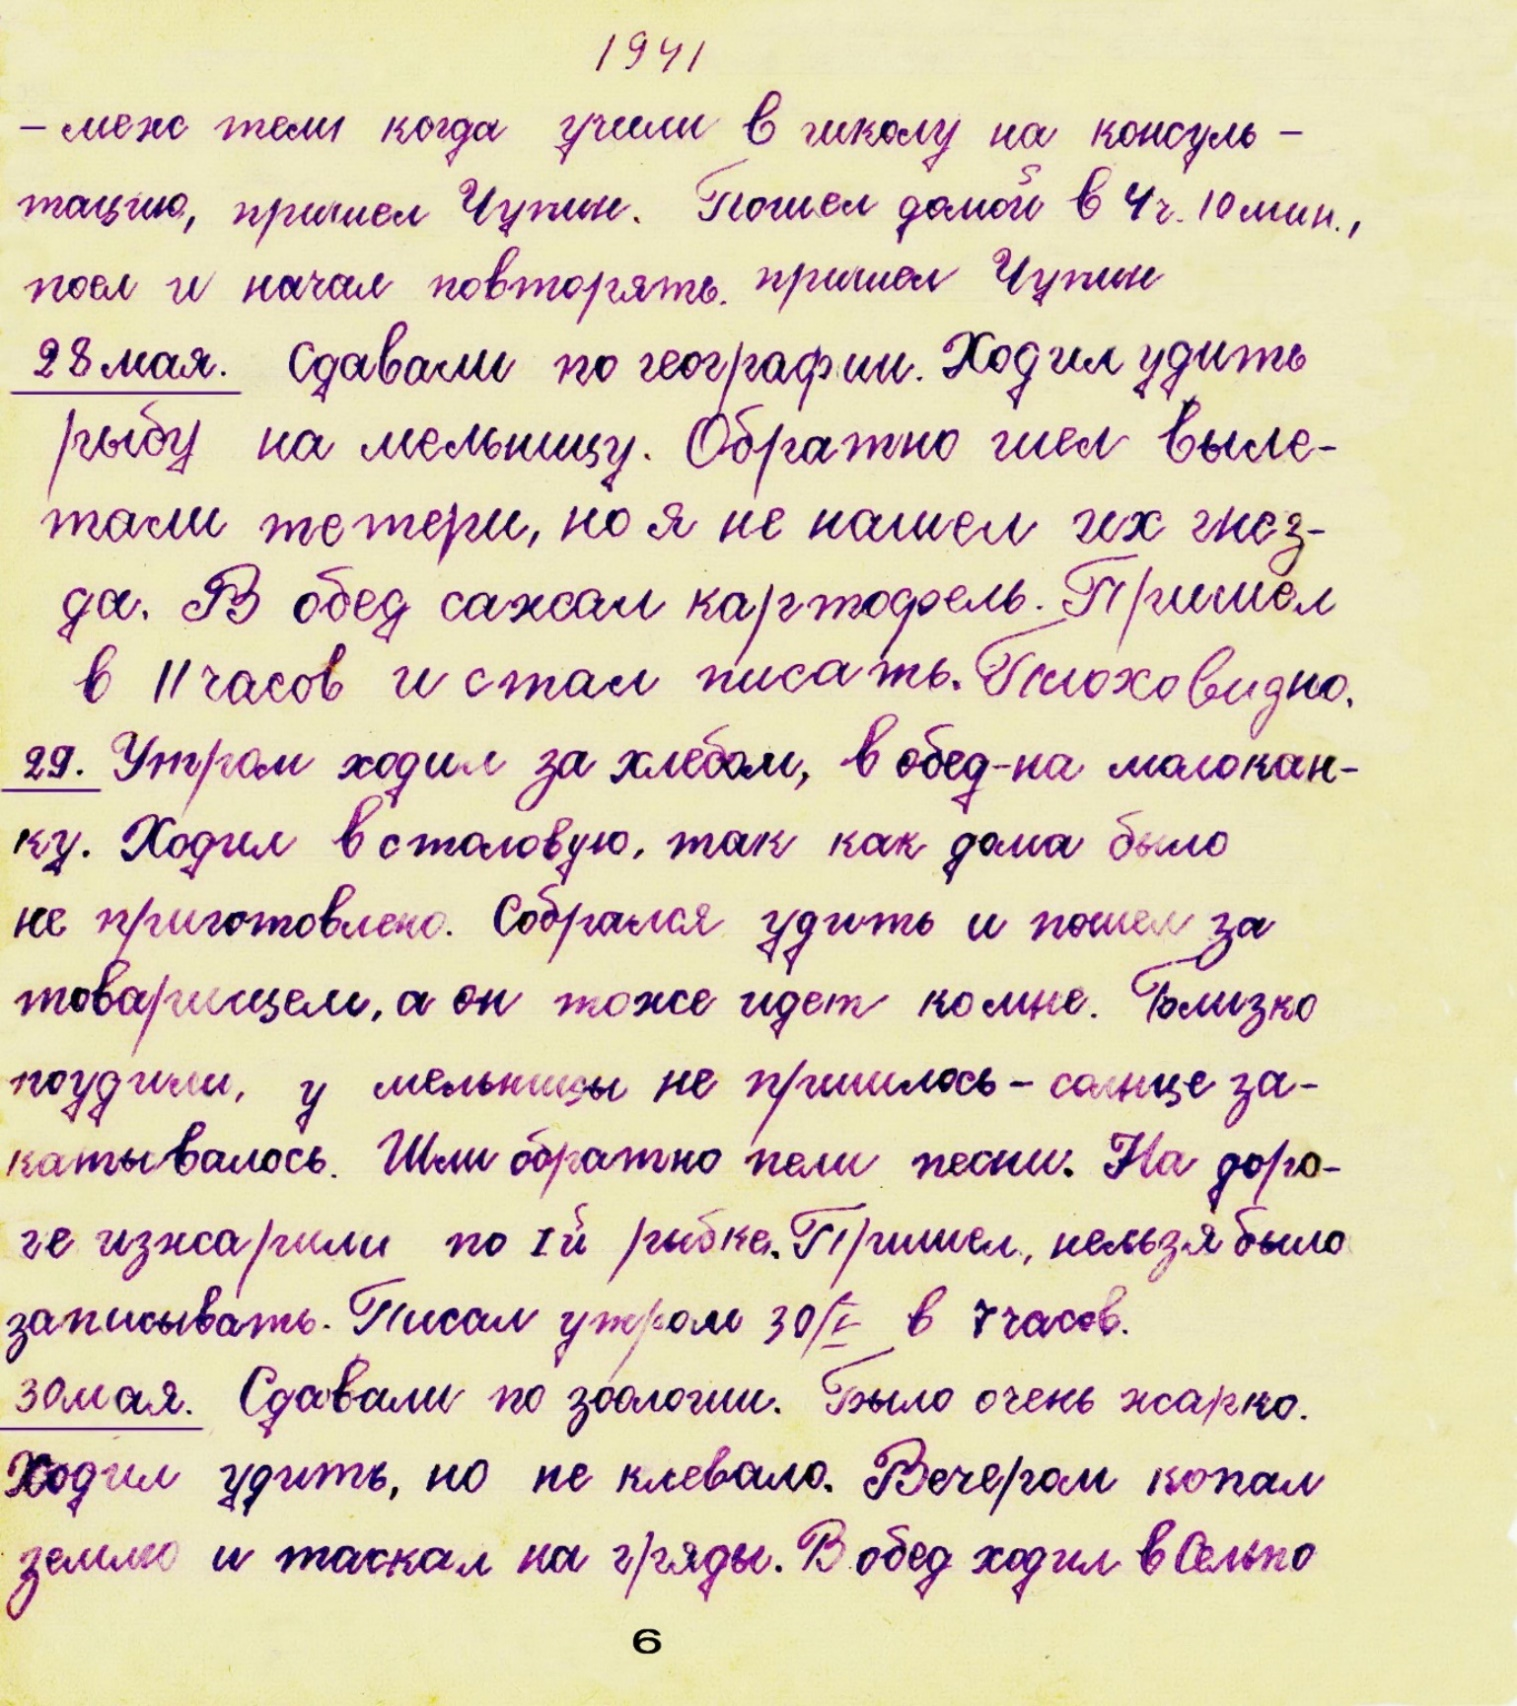 1941
– меж тем когда учили в школу на консуль –
тацию, пришел Чупин. Пошел домой в 4 ч. 10 мин.,
поел и начал повторять. пришел Чупин
28 мая. Сдавали по географии. Ходил удить
рыбу на мельницу. Обратно шел выле-
тали тетери, но я не нашел их гнез-
да. В обед сажал картофель. Пришел
в 11 часов и стал писать. Плохо видно.
29. Утром ходил за хлебом, в обед-на молокан-
ку. Ходил в столовую, так как дома было
не приготовлено. Собрался удить и пошел за
товарищем, а он тоже идет ко мне. Близко
поудили, у мельницы не пришлось – солнце за-
катывалось. Шли обратно пели песни. На доро-
ге изжарили по 1й рыбке. Пришел, нельзя было
записывать. Писал утром 30/V в 7 часов.
30 мая. Сдавали по зоологии. Было очень жарко.
Ходил удить, но не клевало. Вечером копал
землю и таскал на гряды. В обед ходил в Сельпо
6